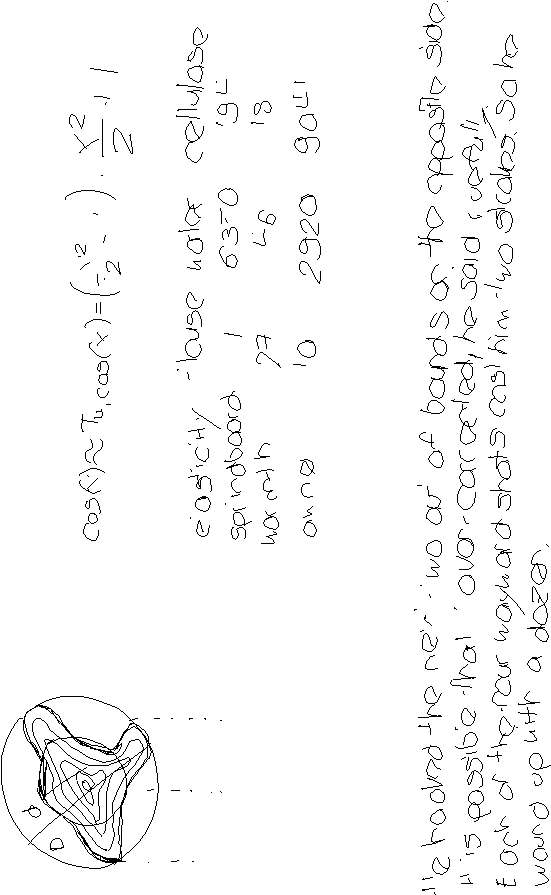 cos(x) ≈ T4, cos(x) = (x^2/2 - 1) · x^2/2 · 1
elasticity louse water cellulase
springboard 1 6370 194
warmth 77 46 18
anne 10 2920 9041
He hooked the next two out of bounds on the opposite side.
It is possible that I over-corrected, he said ruefully.
Each of the four wayward shots cost him two strokes, so he
wound up with a dozen.